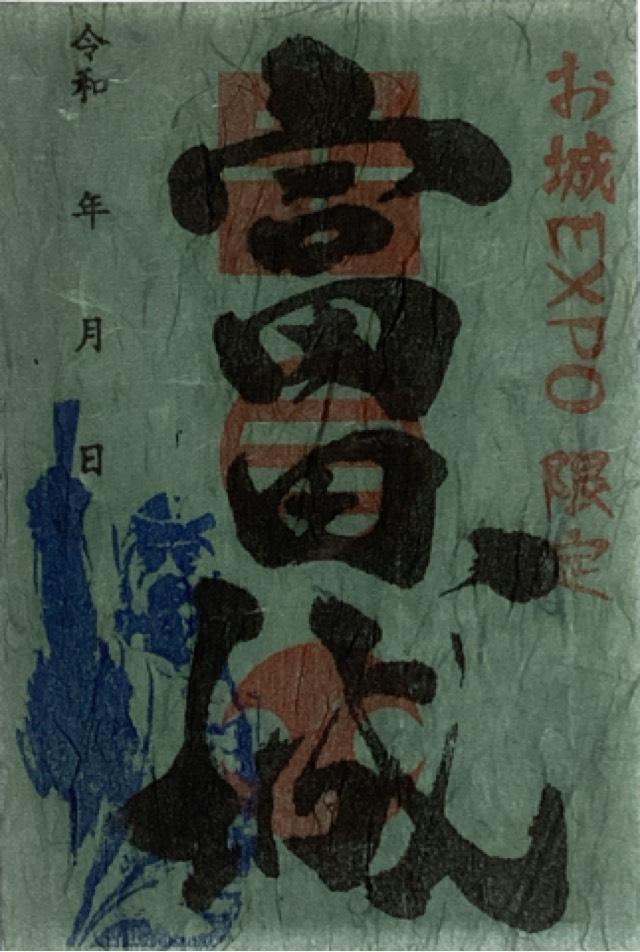 お城EXPO 限定
富田城
令和 年 月 日